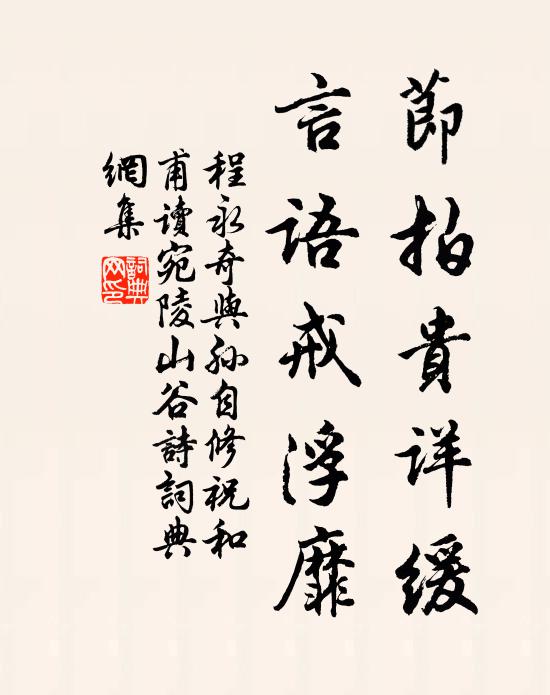 節拍貴詳緩
言語戒浮靡
程永奇與孙自修祝和
甫讀宛陵山谷詩詞典
網集
詞典網印